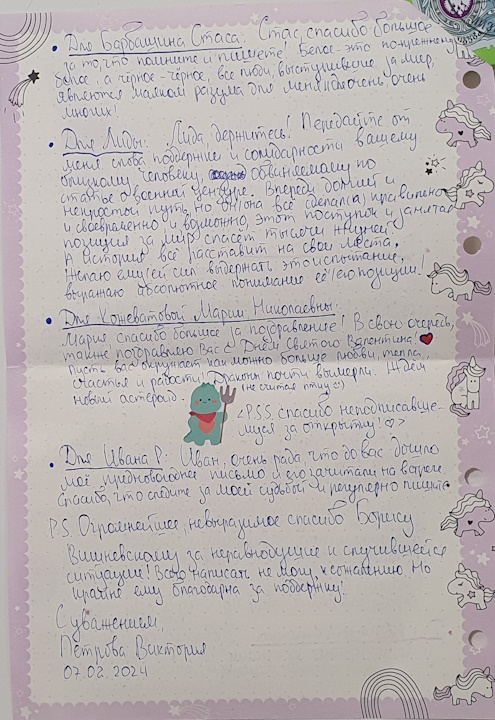 • Для Барбашина Стаса: Стас, спасибо большое
за то, что помните и пишете! Белое - это по-прежнему
белое, а чёрное - чёрное, все люди, выступившие за мир,
являются маяком разума для меня и для очень, очень
многих!
• Для Лиды: Лида, держитесь! Передайте от
меня слова поддержки и солидарности вашему
близкому человеку, обвиняемому по
статье о военной цензуре. Впереди долгий и
непростой путь, но он/она всё сделал(а) правильно
и своевременно и, возможно, этот поступок и заметная
позиция за мир спасёт тысячи жизней.
А история всё расставит на свои места.
Желаю ему/ей сил выдержать это испытание,
выражаю абсолютное понимание её/его позиции!
• Для Кожеватовой Марии Николаевны:
Мария спасибо большое за поздравление! В свою очередь,
также поздравляю Вас с Днём Святого Валентина!
Пусть вас окружает как можно больше любви, тепла,
счастья и радости! Драконы почти вымерли. Ждём
новый астероид. (не считая птиц :))
<P.S.S. спасибо неподписавше-
муся за открытку! ♡>
• Для Ивана Р: Иван, очень рада, что до вас дошло
моё предновогоднее письмо и его зачитали на встрече.
Спасибо, что следите за моей судьбой и регулярно пишите.
P.S. Огромнейшее, невыразимое спасибо Борису
Вишневскому за неравнодушие к случившейся
ситуации! Всего написать не могу, к сожалению. Но
крайне ему благодарна за поддержку!
С уважением,
Петрова Виктория
07.02.2024